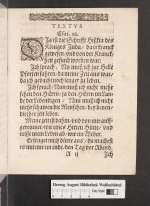 TEXTVS
Esai. 38.
Dis ist die Schrifft Hißkia des
Königes Juda, da er kranck
gewesen, und von der Kranck-
heit gesund worden war.
Ich sprach: Nu muß ich zur Helle
Pforten fahren, da meine Zeit aus war,
da ich gedachte noch lenger zu leben.
Ich sprach: Nun muß ich nicht mehr
sehen den HErrn, ja den HErrn im Lan-
de der Lebendigen. Nun muß ich nicht
mehr schawen die Menschen, bey denen
die ihre Zeit leben.
Meine Zeit ist dahin, und von mir auff-
gereumet, wie eines Hirten Hütte, und
reisse mein Leben ab, wie ein Weber.
Er seuget mich dürre aus, du machests
mit mir ein ende, den Tag vor Abend.
A ij Ich
Herzog August Bibliothek Wolfenbüttel